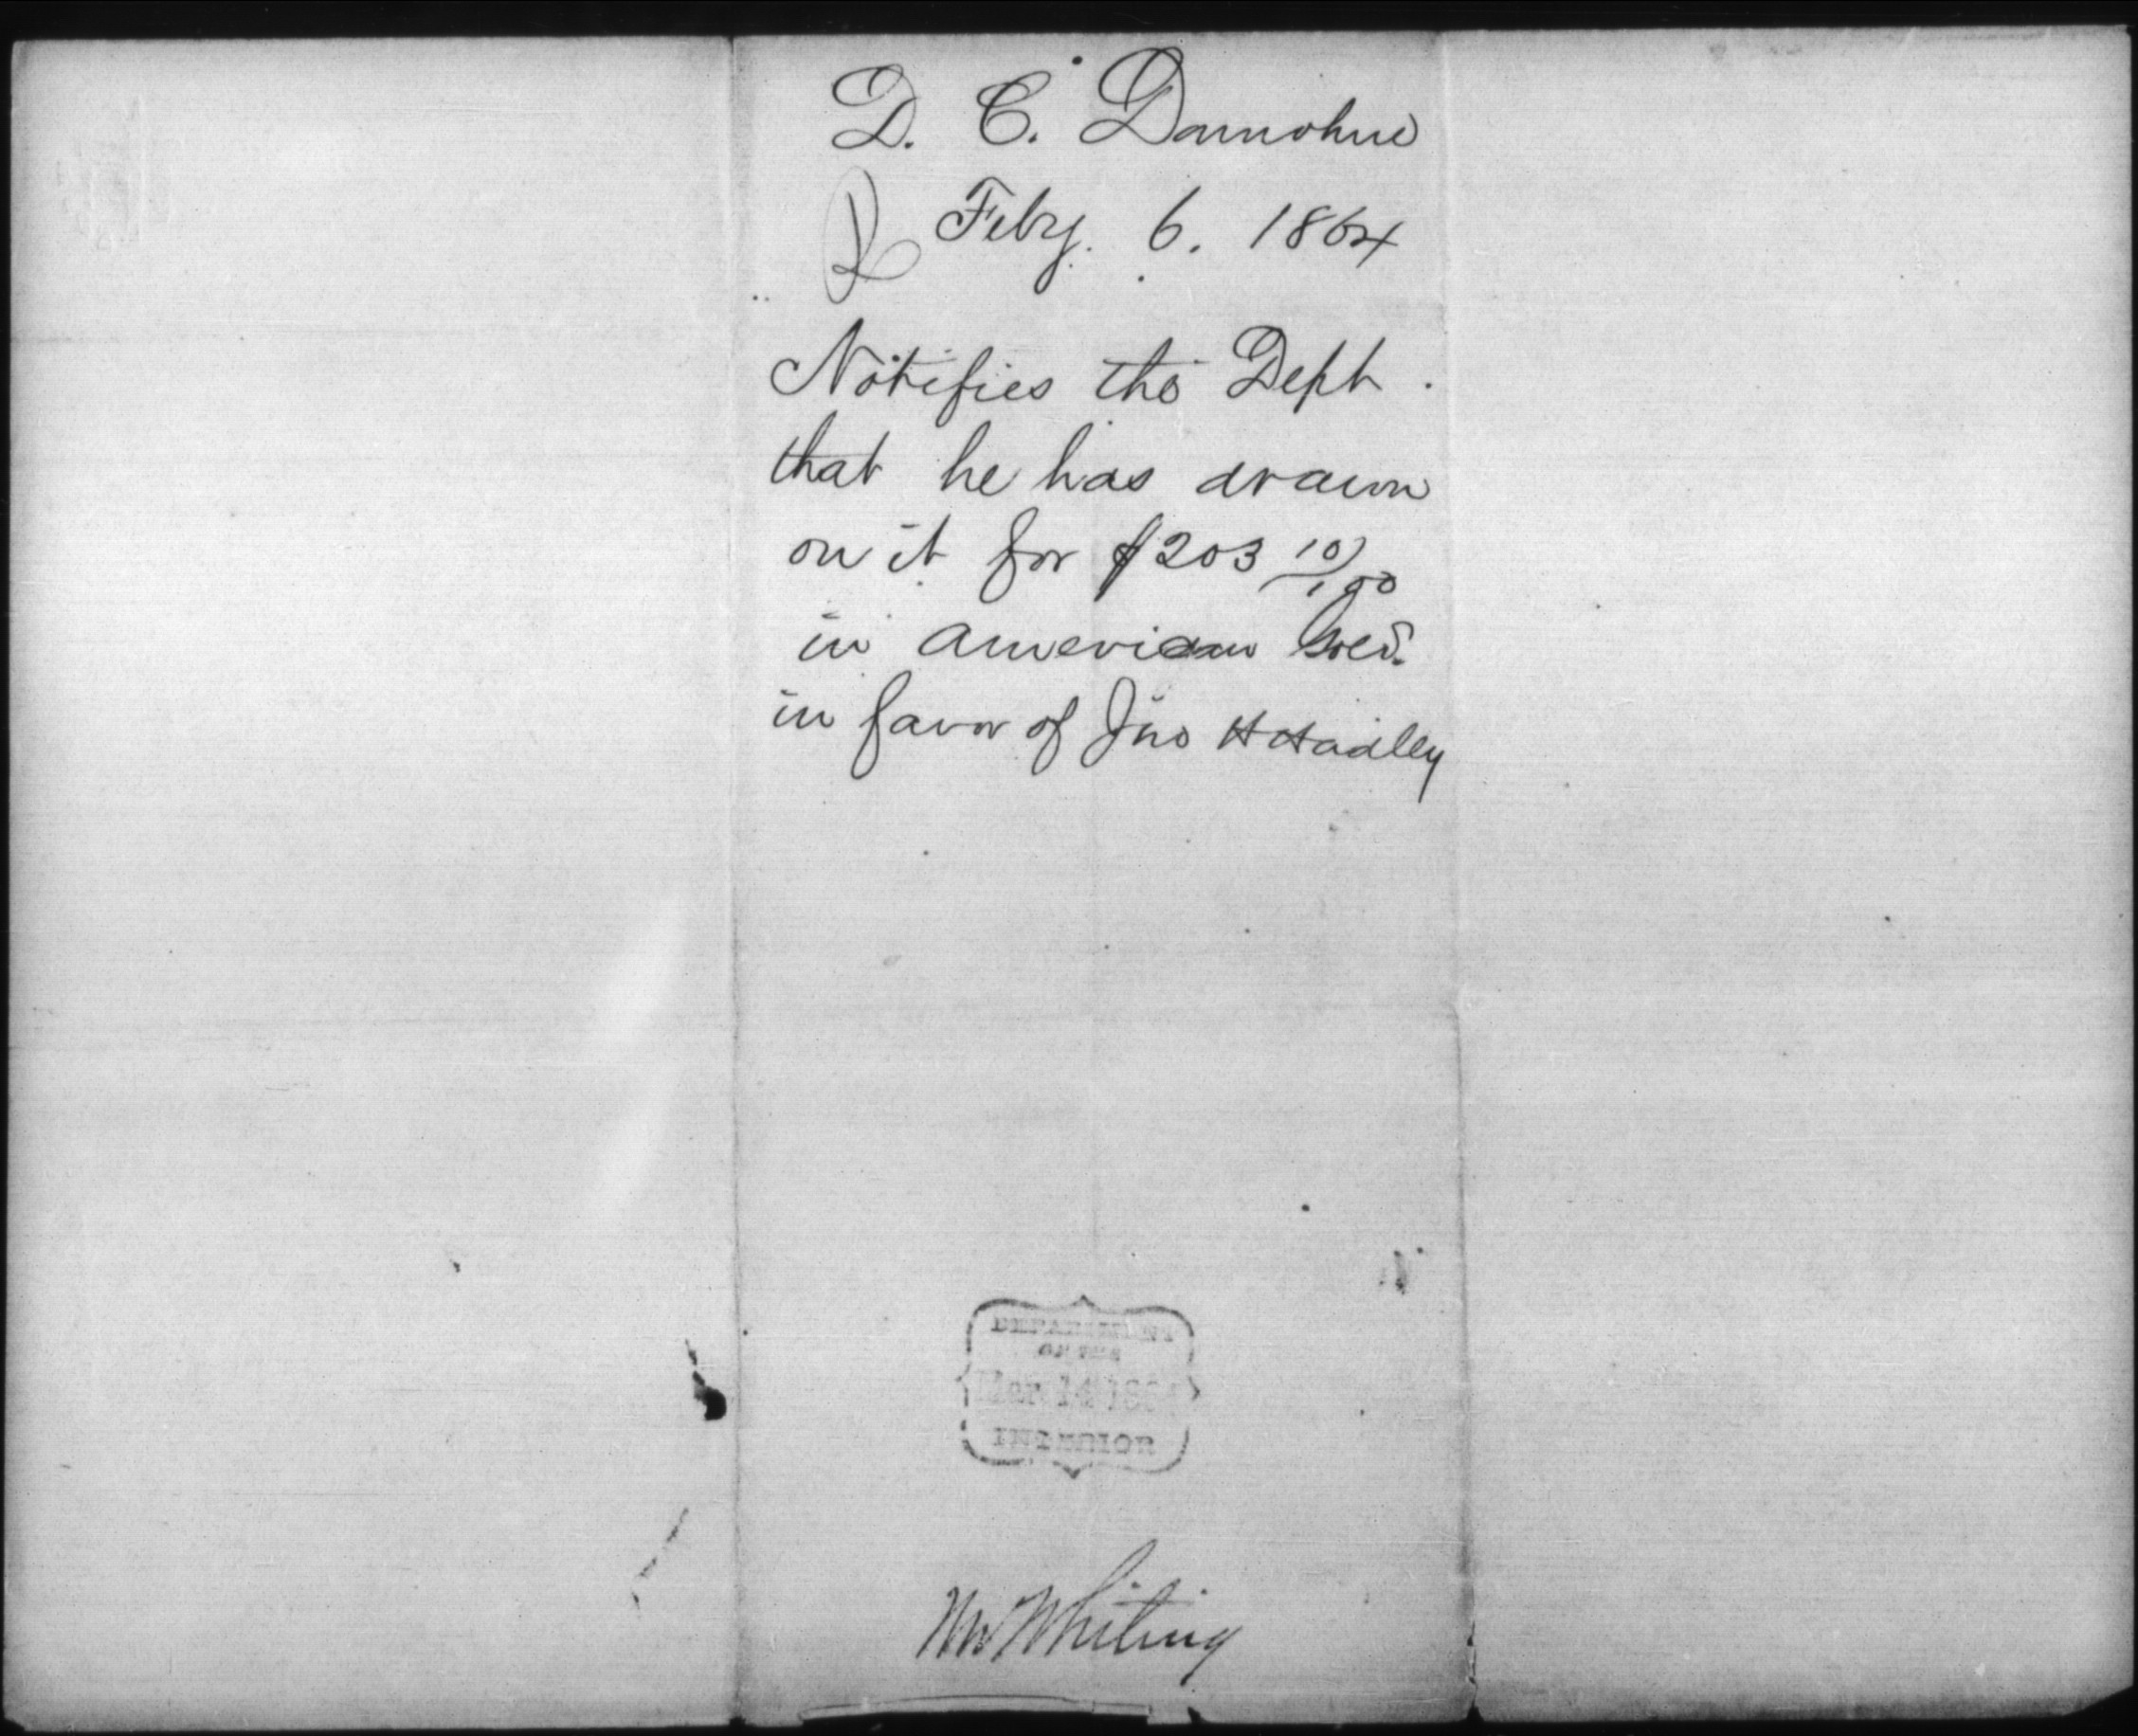 D. C. Dannohue
Feby. 6. 1864
Notifies the Dept.
that he has drawn
on it for $203 10/100
in American Gold.
in favor of Jno H Hadley
DEPARTMENT
OF THE
Mar 14 1864
INTERIOR
Mr Whiting